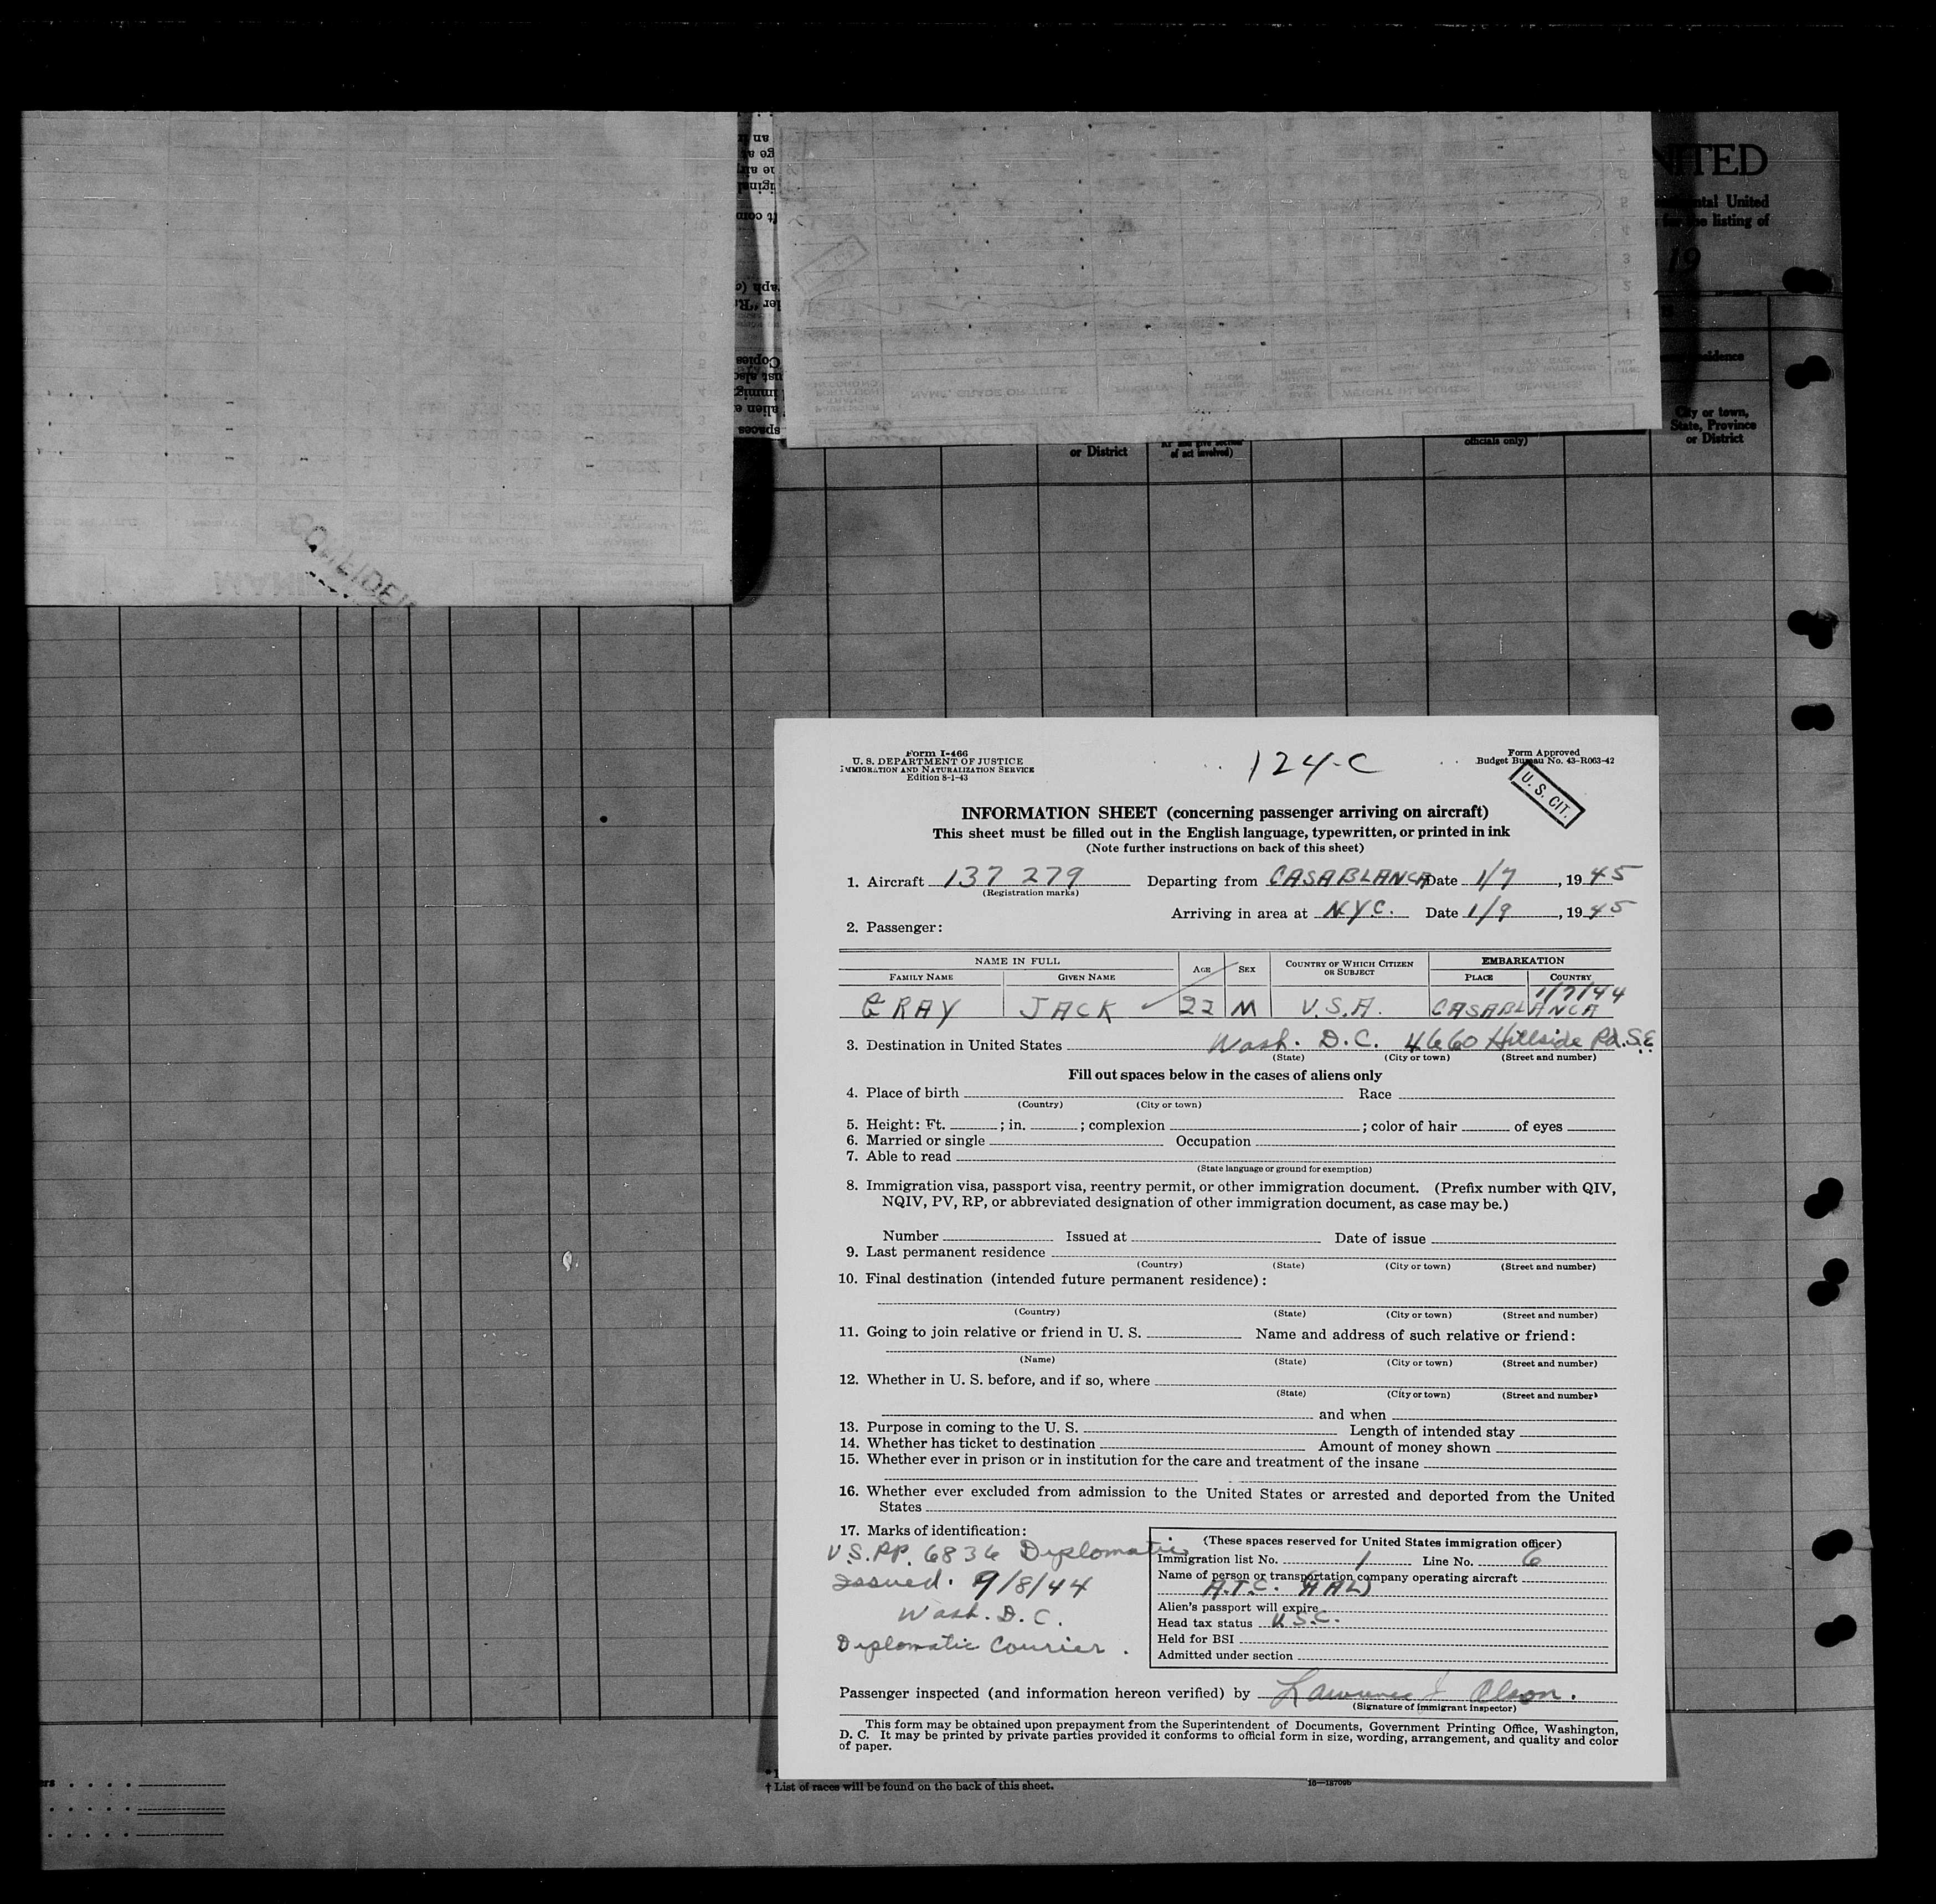 NITED
ntal United
for the listing of
19
idence
City or town,
State, Province
or District
officials only)
or District
of act involved)
CONFIDEN
Form I-466
U. S. DEPARTMENT OF JUSTICE
IMMIGRATION AND NATURALIZATION SERVICE
Edition 8-1-43
124-C
Form Approved
Budget Bureau No. 43-R063-42
U. S. CIT.
INFORMATION SHEET (concerning passenger arriving on aircraft)
This sheet must be filled out in the English language, typewritten, or printed in ink
(Note further instructions on back of this sheet)
1. Aircraft 137 279 Departing from CASABLANCA Date 1/7, 1945
(Registration marks)
Arriving in area at N.Y.C. Date 1/9, 1945
2. Passenger:
NAME IN FULL AGE SEX COUNTRY OF WHICH CITIZEN OR SUBJECT EMBARKATION
FAMILY NAME GIVEN NAME PLACE COUNTRY
1/7/44
GRAY JACK 22 M U.S.A. CASABLANCA
3. Destination in United States Wash. D.C. 4660 Hillside Rd. S.E.
(State) (City or town) (Street and number)
Fill out spaces below in the cases of aliens only
4. Place of birth Race
(Country) (City or town)
5. Height: Ft. ; in. ; complexion ; color of hair of eyes
6. Married or single Occupation
7. Able to read
(State language or ground for exemption)
8. Immigration visa, passport visa, reentry permit, or other immigration document. (Prefix number with QIV,
NQIV, PV, RP, or abbreviated designation of other immigration document, as case may be.)
Number Issued at Date of issue
9. Last permanent residence
(Country) (State) (City or town) (Street and number)
10. Final destination (intended future permanent residence):
(Country) (State) (City or town) (Street and number)
11. Going to join relative or friend in U. S. Name and address of such relative or friend:
(Name) (State) (City or town) (Street and number)
12. Whether in U. S. before, and if so, where
(State) (City or town) (Street and number)
and when
13. Purpose in coming to the U. S. Length of intended stay
14. Whether has ticket to destination Amount of money shown
15. Whether ever in prison or in institution for the care and treatment of the insane
16. Whether ever excluded from admission to the United States or arrested and deported from the United
States
17. Marks of identification:
U.S. PP. 6836 Diplomatic
Issued. 9/8/44
Wash. D.C.
Diplomatic Courier.
(These spaces reserved for United States immigration officer)
Immigration list No. 1 Line No. 6
Name of person or transportation company operating aircraft
A.T.C. (AAL)
Alien's passport will expire
Head tax status U.S.C.
Held for BSI
Admitted under section
Passenger inspected (and information hereon verified) by Lawrence J Olson.
(Signature of immigrant inspector)
This form may be obtained upon prepayment from the Superintendent of Documents, Government Printing Office, Washington,
D. C. It may be printed by private parties provided it conforms to official form in size, wording, arrangement, and quality and color
of paper.
† List of races will be found on the back of this sheet.